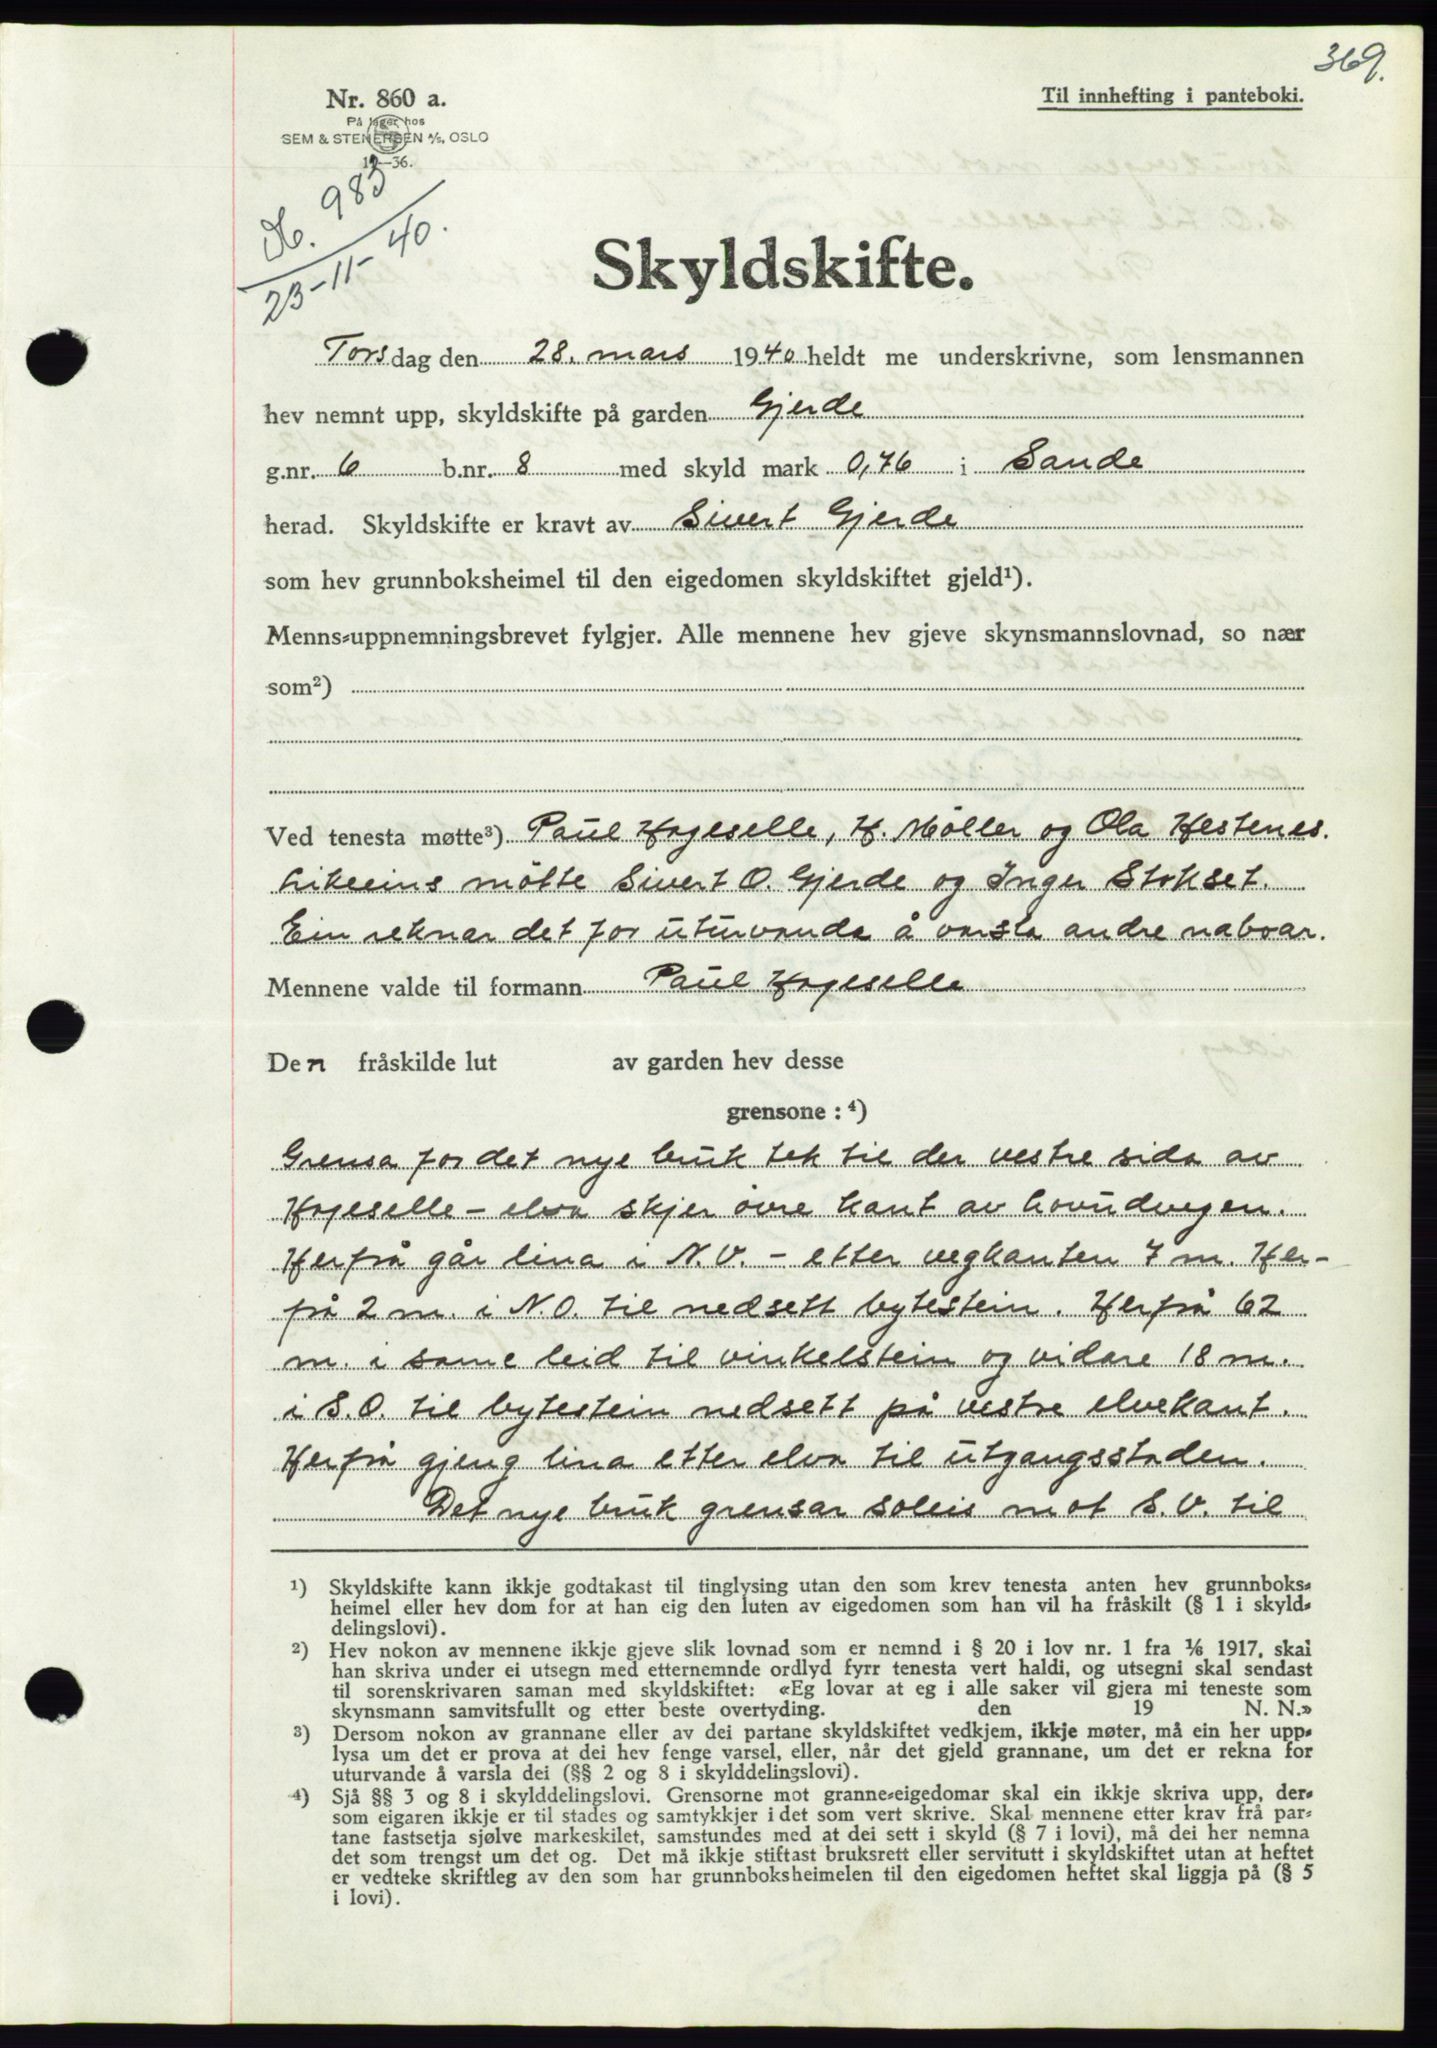 369.
Nr. 860 a.
Til innhefting i panteboki.
På lager hos
SEM & STENERSEN A/S, OSLO
12—36.
No. 983
23-11-40.
Skyldskifte.
Torsdag den 28. mars 1940 heldt me underskrivne, som lensmannen
hev nemnt upp, skyldskifte på garden Gjerde
g.nr. 6 b.nr. 8 med skyld mark 0,76 i Sande
herad. Skyldskifte er kravt av Sivert Gjerde
som hev grunnboksheimel til den eigedomen skyldskiftet gjeld¹).
Menns-uppnemningsbrevet fylgjer. Alle mennene hev gjeve skynsmannslovnad, so nær
som²)
Ved tenesta møtte³) Paul Hageselle, H. Møller og Ola Hestenes.
Likeeins møtte Sivert O. Gjerde og Inger Stokset.
Ein reknar det for uturvande å varsla andre naboar.
Mennene valde til formann Paul Hageselle
Den fråskilde lut av garden hev desse
grensone : ⁴)
Grensa for det nye bruk tek til der vestre sida av
Hageselle - elva skjer øvre kant av hovudvegen.
Herfrå går lina i N.V. - etter vegkanten 7 m. Her-
frå 2 m. i N.O. til nedsett bytestein. Herfrå 62
m. i same leid til vinkelstein og vidare 18 m.
i S.O. til bytestein nedsett på vestre elvekant.
Herfrå gjeng lina etter elva til utgangsstaden.
Det nye bruk grensar soleis mot S.V. til
¹) Skyldskifte kann ikkje godtakast til tinglysing utan den som krev tenesta anten hev grunnboks-
heimel eller hev dom for at han eig den luten av eigedomen som han vil ha fråskilt (§ 1 i skyld-
delingslovi).
²) Hev nokon av mennene ikkje gjeve slik lovnad som er nemnd i § 20 i lov nr. 1 fra 1/6 1917, skal
han skriva under ei utsegn med etternemnde ordlyd fyrr tenesta vert haldi, og utsegni skal sendast
til sorenskrivaren saman med skyldskiftet: «Eg lovar at eg i alle saker vil gjera mi teneste som
skynsmann samvitsfullt og etter beste overtyding. den 19 N. N.»
³) Dersom nokon av grannane eller av dei partane skyldskiftet vedkjem, ikkje møter, må ein her upp-
lysa um det er prova at dei hev fenge varsel, eller, når det gjeld grannane, um det er rekna for
uturvande å varsla dei (§§ 2 og 8 i skylddelingslovi).
⁴) Sjå §§ 3 og 8 i skylddelingslovi. Grensorne mot granne-eigedomar skal ein ikkje skriva upp, der-
som eigaren ikkje er til stades og samtykkjer i det som vert skrive. Skal mennene etter krav frå par-
tane fastsetja sjølve markeskilet, samstundes med at dei sett i skyld (§ 7 i lovi), må dei her nemna
det som trengst um det og. Det må ikkje stiftast bruksrett eller servitutt i skyldskiftet utan at heftet
er vedteke skriftleg av den som har grunnboksheimelen til den eigedomen heftet skal liggja på (§ 5
i lovi).